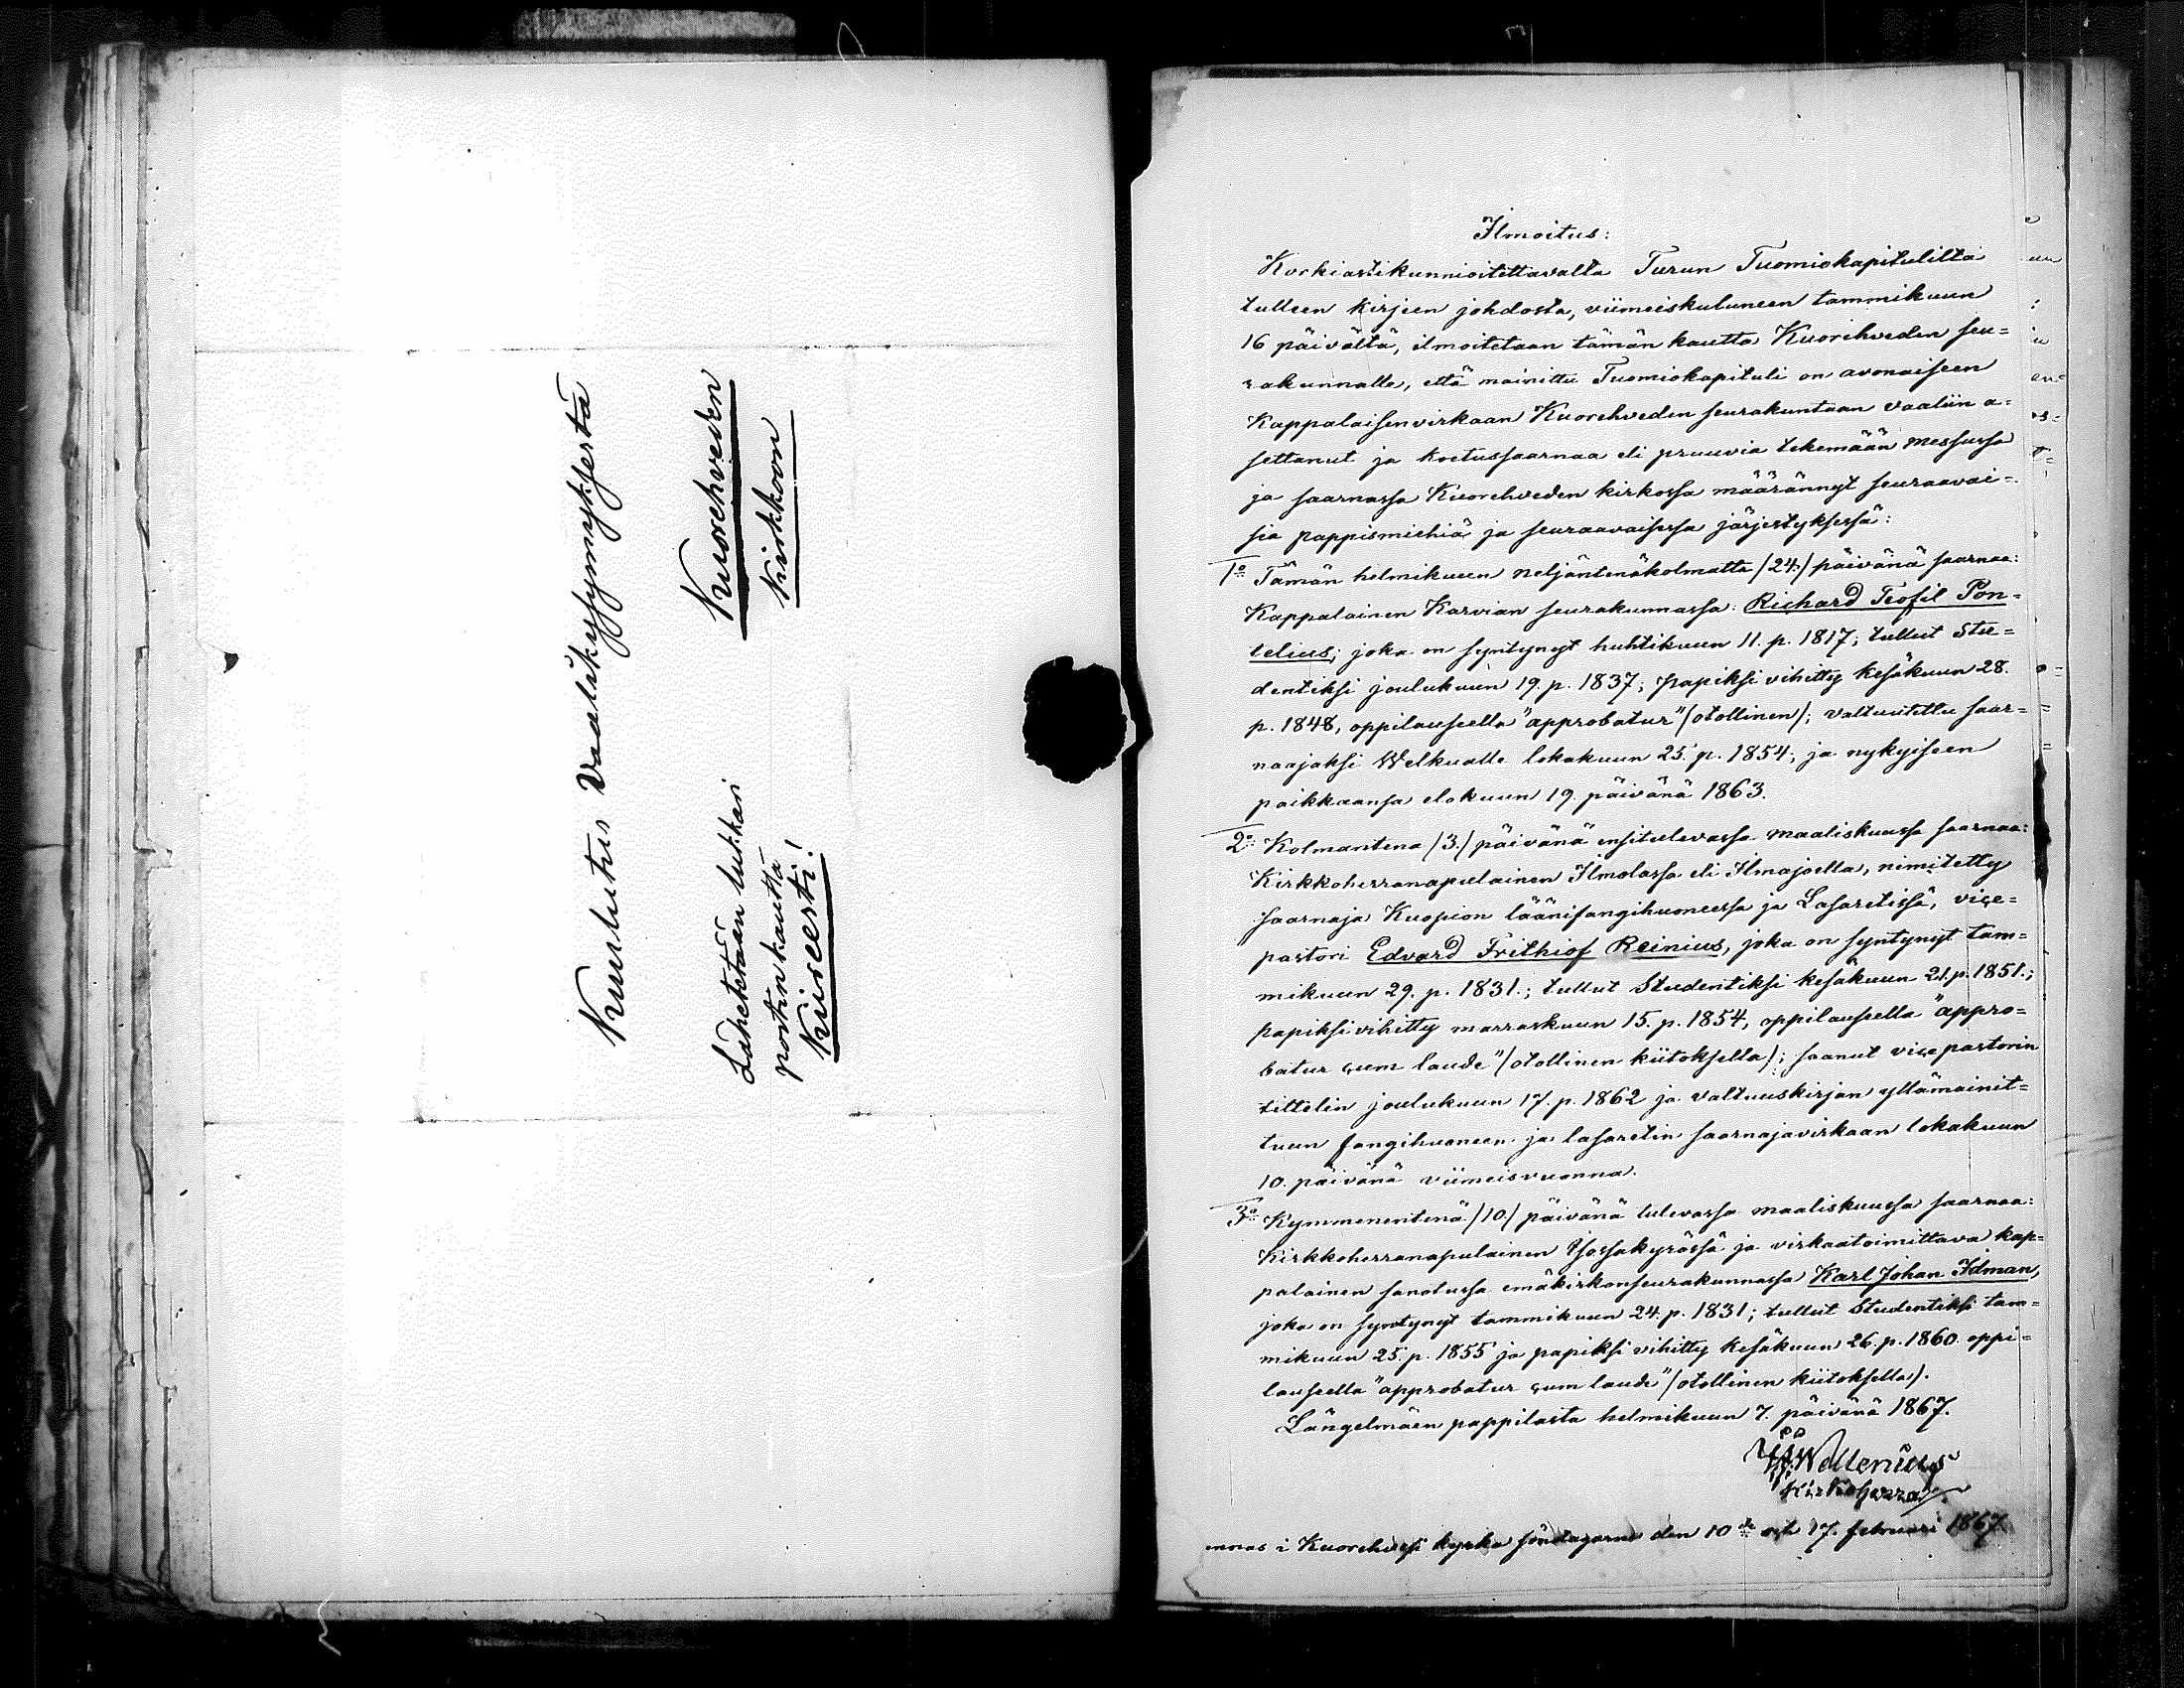 Kuulutus Vaalikysymyksestä
Kuorehveden
Kirkkoon
Lähetetään lukkari
postin kautta
Kiireesti!
Ilmoitus:
Korkiastikunnioitettavalta Turun Tuomiokapitulilta
tulleen kirjeen johdosta, viimeiskuluneen tammikuun
16 päivältä, ilmoitetaan tämän kautta Kuorehveden seu=
rakunnalle, että mainittu Tuomiokapituli on avonaiseen
Kappalaisenvirkaan Kuorehveden seurakuntaan vaaliin a=
settanut ja koetussaarnaa eli pruuvia tekemään messussa
ja saarnassa Kuorehveden kirkossa määrännyt seuraavai=
sia pappismiehiä ja seuraavaisessa järjestyksessä:
1o Tämän helmikuun neljäntenäkolmatta /24./ päivänä saarnaa:
Kappalainen Karvian seurakunnassa: Richard Teofil Pon=
telius; joka on syntynyt huhtikuun 11. p. 1817; tullut Stu=
dentiksi joulukuun 19. p. 1837; papiksi vihitty kesäkuun 28.
p. 1848, oppilauseella "approbatur" (otollinen); valtuutettu saar=
naajaksi Welkualle lokakuun 25. p. 1854; ja nykyiseen
paikkaansa elokuun 19. päivänä 1863.
2o Kolmantena /3./ päivänä ensitulevassa maaliskuussa saarnaa:
Kirkkoherranapulainen Ilmolassa eli Ilmajoella, nimitetty
saarnaja Kuopion läänifangihuoneessa ja Lasaretissa, vice=
pastori Edvard Frithiof Reinius, joka on syntynyt tam=
mikuun 29. p. 1831.; tullut Studentiksi kesäkuun 21. p. 1851.;
papiksi vihitty marraskuun 15. p. 1854, oppilauseella "appro=
batur cum laude" (otollinen kiitoksella); saanut vicepastorin
tittelin joulukuun 17. p. 1862 ja valtuuskirjan yllämainit=
tuun fangihuoneen ja lasaretin saarnajavirkaan lokakuun
10. päivänä viimeisvuonna.
3o Kymmenentenä /10./ päivänä tulevassa maaliskuussa saarnaa:
Kirkkoherranapulainen Isossakyrössä ja virkaatoimittava kap=
palainen sanotussa emäkirkonseurakunnassa Karl Johan Idman,
joka on syntynyt tammikuun 24. p. 1831; tullut Studentiksi tam=
mikuun 25. p. 1855 ja papiksi vihitty kesäkuun 26. p. 1860 oppi=
lauseella "approbatur cum laude" (otollinen kiitoksella).
Längelmäen pappilasta helmikuun 7. päivänä 1867.
Wallenius
Kirkoherra
i Kuorehvesi kyrka söndagarne den 10de och 17. februari 1867